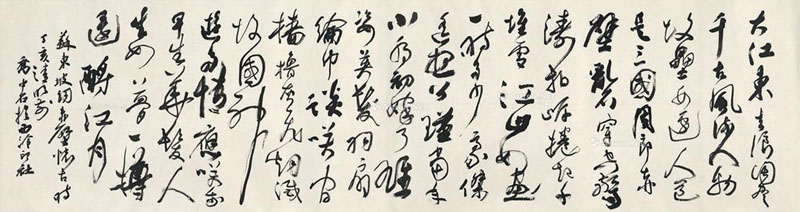 大江东去浪淘尽
千古风流人物
故垒西边人道
是三國周郎赤
壁亂石穿空驚
濤拍岸捲起千
堆雪江山如画
一時多少豪傑
遥想公瑾當年
小喬初嫁了雄
姿英發羽扇
綸巾談笑間
檣櫓灰飛烟滅
故國神
遊多情應笑我
早生華髮人
生如夢一樽
還酹江月
蘇東坡詞赤壁懷古時
丁亥清明前
於西泠印社